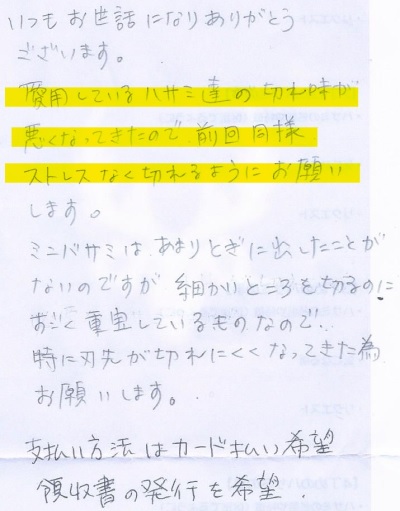 いつもお世話になりありがとう
ございます。
愛用しているハサミ達の切れ味が
悪くなってきたので、前回同様
ストレスなく切れるようにお願い
します。
ミニバサミは、あまりとぎに出したことが
ないのですが、細かいところを切るのに
すごく重宝しているものなので、
時に刃先が切れにくくなってきた為
お願いします。
支払い方法はカード払い希望
領収書の発行を希望。